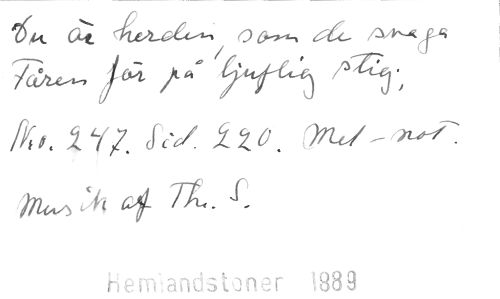 Du är herden, som de svaga
Fåren för på ljuflig stig;
Nro. 247. Sid. 220. Mel-not.
Musik af Th. S.
Hemlandstoner 1889